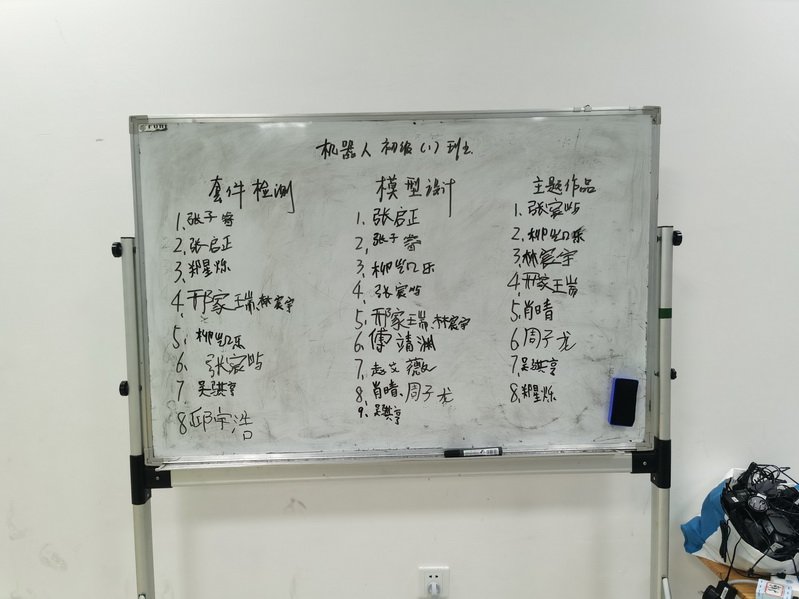 机器人 初级(1)班
套件检测
1. 张子睿
2. 张启正
3. 郑星烁
4. 邢家瑞、林宸宇
5. 柳
6. 张宸
7. 吴骐亨
8. 邱宇浩
模型设计
1. 张启正
2. 张子睿
3. 柳 乐
4. 张宸
5. 邢家瑞、林宸宇
6. 傅靖渊
7. 赵艾薇
8. 肖晴、周子龙
9. 吴骐亨
主题作品
1. 张宸
2. 柳 乐
3. 林宸宇
4. 邢家瑞
5. 肖晴
6. 周子龙
7. 吴骐亨
8. 郑星烁